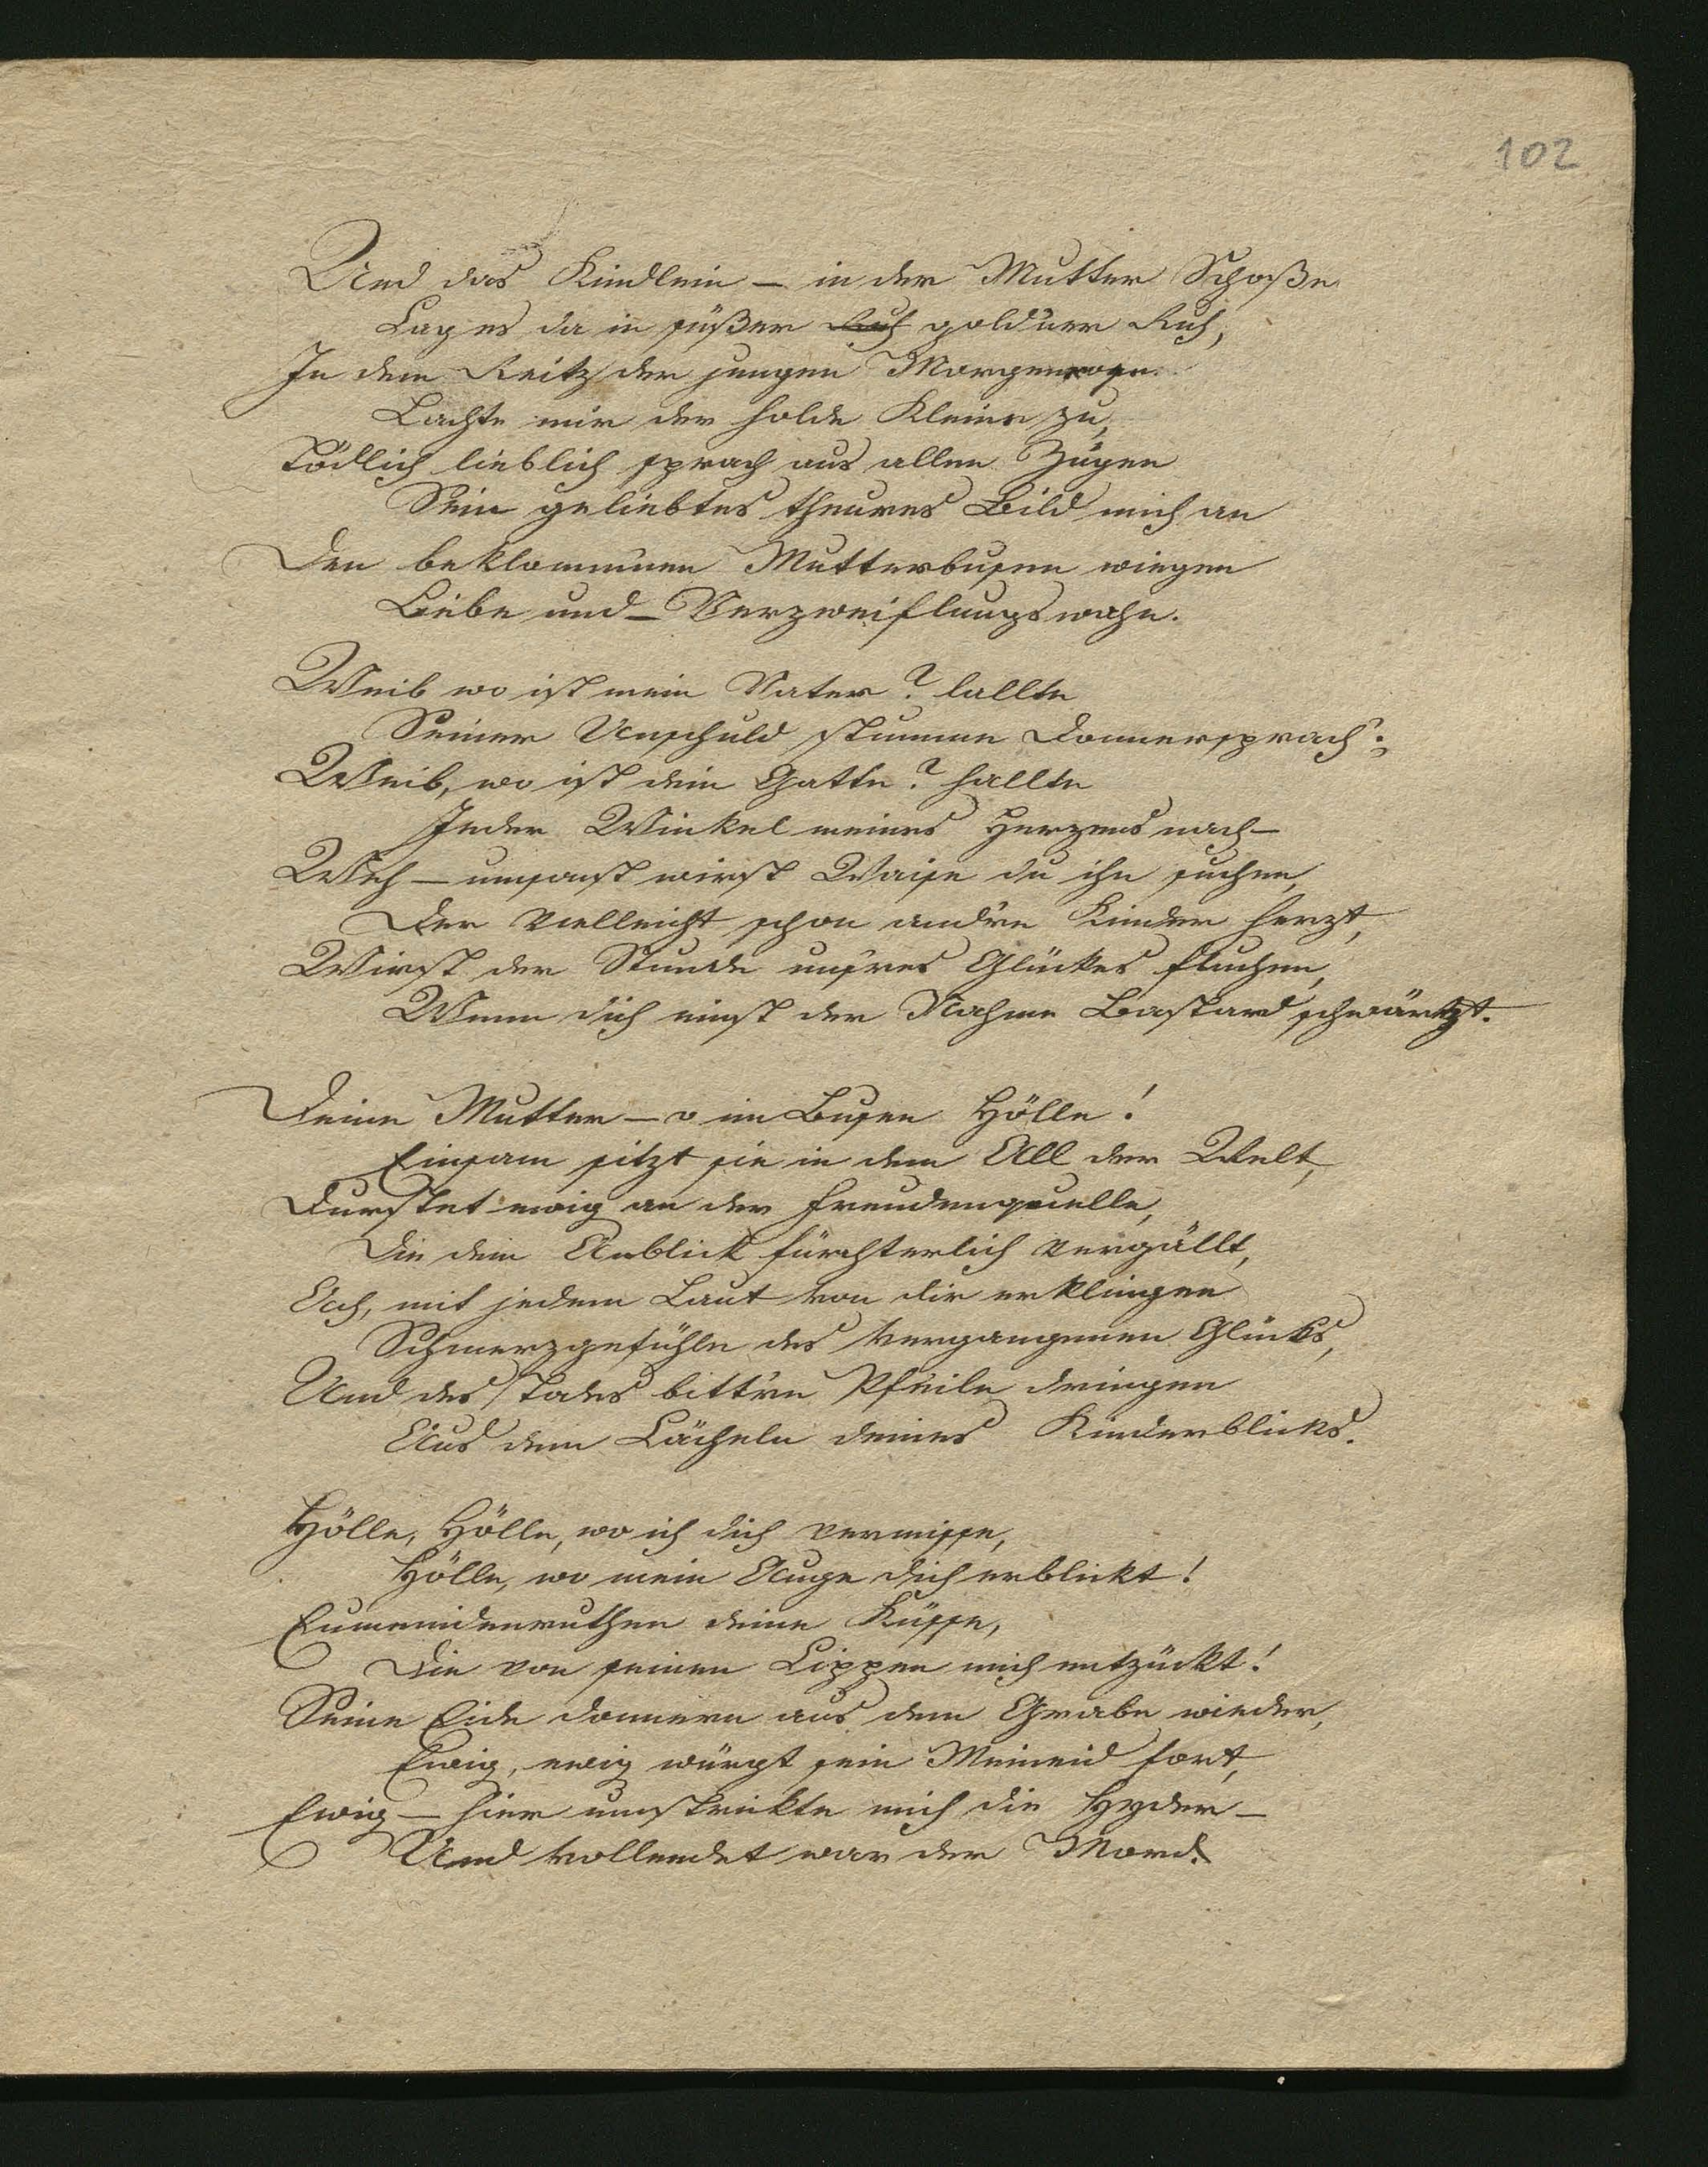 102
Und das Kindlein – in der Mutter Schoße
Lag es da in süßer Ruh goldner Ruh,
In dem Reitz der jungen Morgenrose
Lachte mir der holde Kleine zu,
Tödlich lieblich sprach aus allen Zügen
Sein geliebtes theures Bild mich an
Den beklommenen Mutterbusen wiegen
Liebe und – Verzweiflungswahn.
Weib wo ist mein Vater? lallte
Seiner Unschuld stumme Donnersprach';
Weib, wo ist dein Gatte? hallte
Jeder Winkel meines Herzens nach –
Weh – umsonst wirst Waise du ihn suchen,
Der vielleicht schon andre Kinder herzt,
Wirst der Stunde unsres Glückes fluchen,
Wenn dich einst der Nahme Bastard schwärtzt.
Deine Mutter – o im Busen Hölle!
Einsam sitzt sie in dem All der Welt,
Durstet ewig an der Freudenquelle,
Die dein Anblick fürchterlich vergällt,
Ach, mit jedem Laut von dir erklingen
Schmerzgefühle des vergangenen Glücks,
Und des Todes bittre Pfeile dringen
Aus dem Lächeln deines Kinderblicks.
Hölle, Hölle, wo ich dich vermisse,
Hölle, wo mein Auge dich erblickt!
Eumenidenruthen deine Küsse,
Die von seinen Lippen mich entzückt!
Seine Eide donnern aus dem Grabe wieder,
Ewig, ewig würgt sein Meineid fort,
Ewig – hier umstrickte mich die Hyder –
Und vollendet war der Mord.